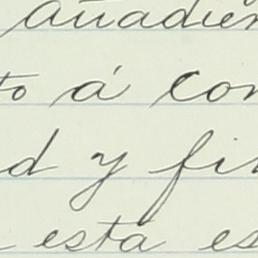 añadien
to á con
d y fir
esta es